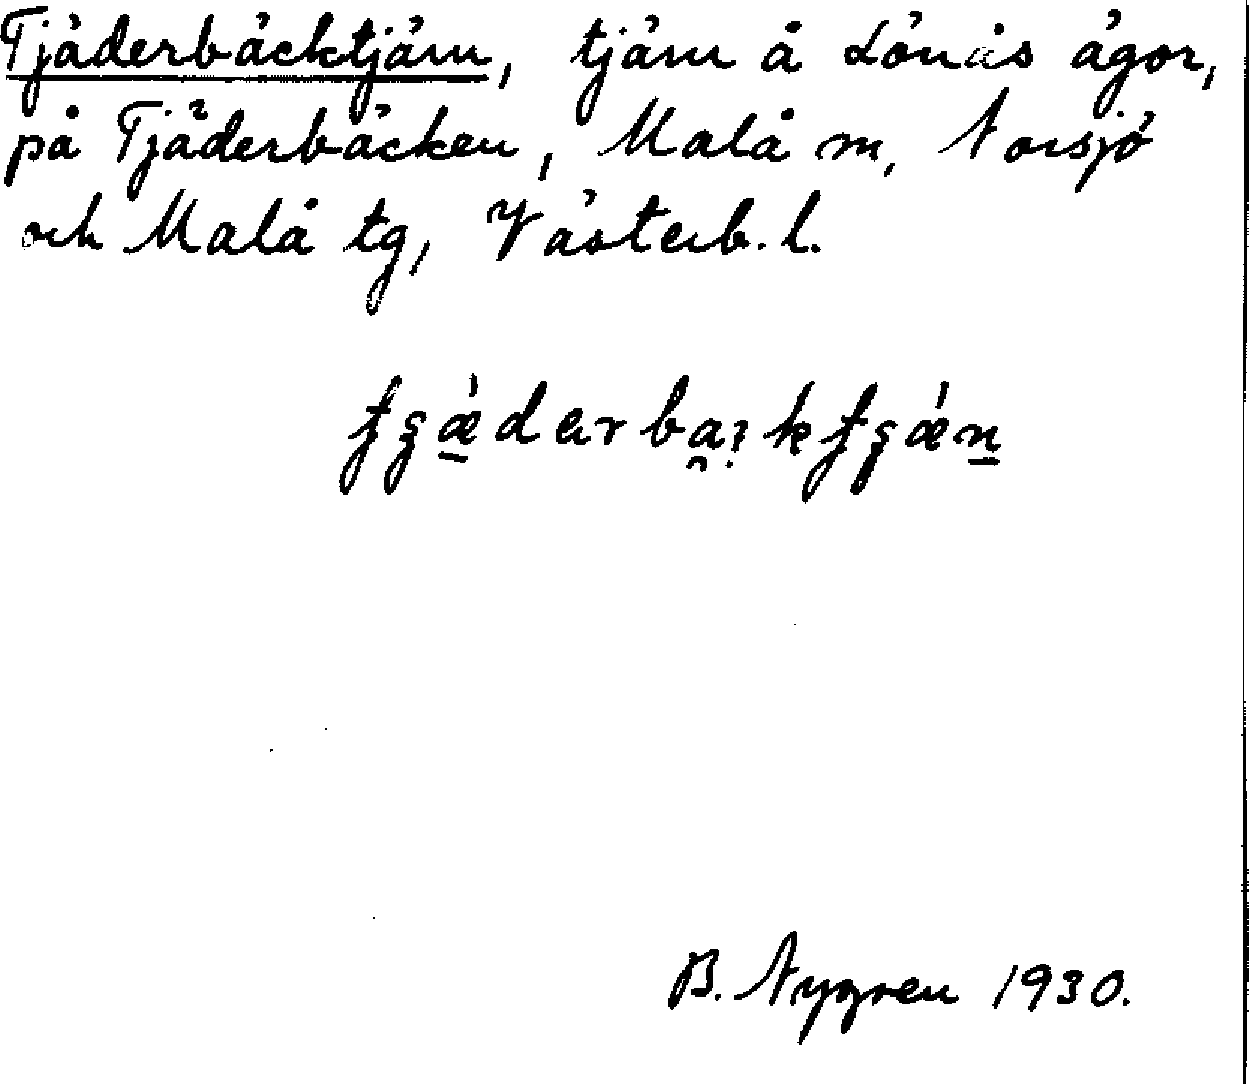 Tjäderbäcktjärn, tjärn å Lönås ägor,
på Tjäderbäcken, Malå sn, Norsjö
och Malå tg, Västerb. l.
B. Nygren 1930.